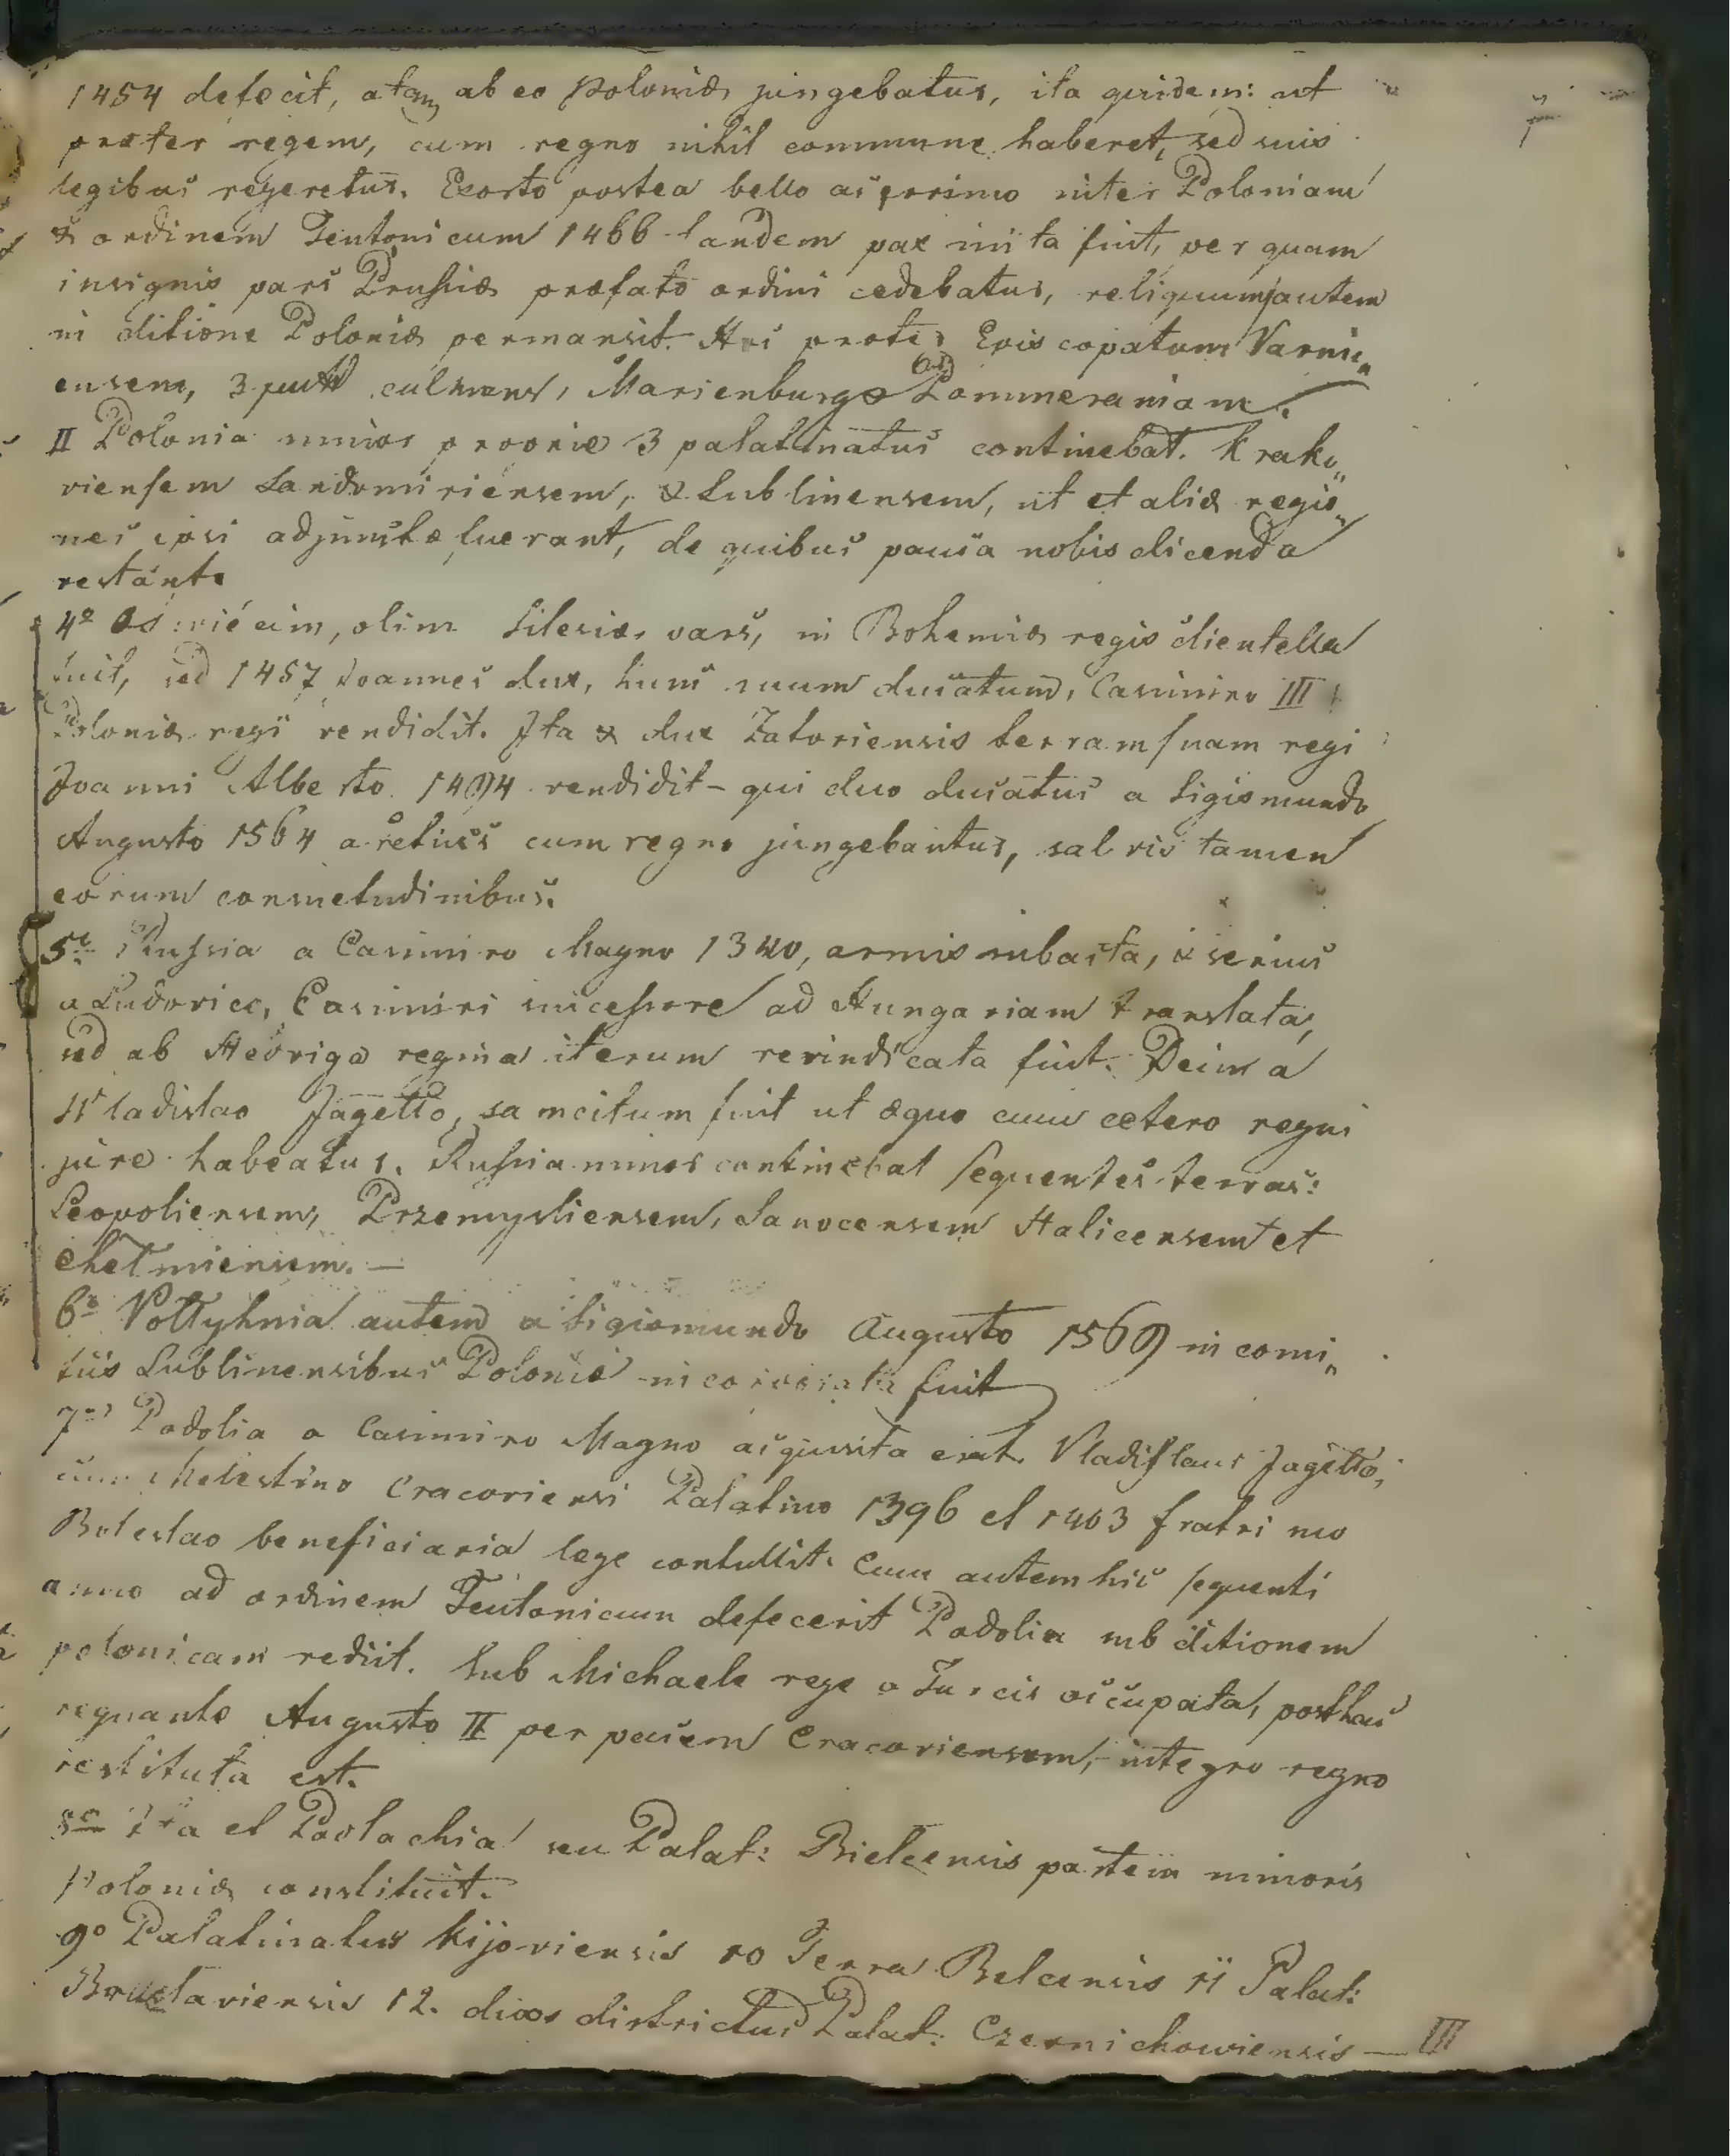 1454 defecit, atqm ab eo Poloniæ jungebatur, ita quidem: ut
præter regem, cum regno nihil commune haberet, sed suis
legibus regeretur. Exorto postea bello acerrimo inter Poloniam
& ordinem Teutonicum 1466 tandem pax inita fuit, per quam
insignis pars Prussiæ præfato ordini cedebatur, reliquum autem
in ditione Poloniæ permansit. præter Episcopatum Varmi„
ensem, 3 culmens, Marienburgo Pommeraniam.
II Polonia minor proprie 3 palatinatus continebat. Krako„
viensem Sandomiriensem, & Lublinensem, ut et aliæ regio„
nes ipsi adjunctæ fuerant, de quibus pauca nobis dicenda
restant.
4º Oswiécim, olim Silesiæ pars, in Bohemiæ regis clientella
fuit, sed 1457 Joannes dux, hunc suum ducatum, Casimiro III
Poloniæ regi vendidit. Ita & dux Zatoriensis terram suam regi
Joanni Alberto 1494 vendidit – qui duo ducatus a Sigismundo
Augusto 1564 arctius cum regno jungebantur, salvis tamen
eorum consuetudinibus.
5º Russia a Casimiro Magno 1340, armis subacta, & serius
a Ludovico, Casimiri successore ad Hungariam translata,
sed ab Hedviga regina iterum revindicata fuit. Dein a
Wladislao Jagełło, sancitum fuit ut æquo cum cætero regni
jure habeatur. Russia minor continebat sequentes terras:
Leopoliensem, Przemysliensem, Sanocensem Halicensem et
Chełmiensem. —
6º Vołłyhnia autem a Sigismundo Augusto 1569 in comi„
tiis Lublinensibus Poloniæ incorporata fuit
7º Podolia a Casimiro Magno acquisita erat. Vladislaus Jagełło,
cum Melestino Cracoviensi Palatino 1396 et 1403 fratri suo
Boleslao beneficiaria lege contullit. Cum autem hic sequenti
anno ad ordinem Teutonicum defecerit Podolia sub ditionem
polonicam rediit. Sub Michaele rege a Turcis occupata, posthac
regnante Augusto II per pacem Cracoviensem, integro regno
restituta est.
8º Ita et Podlachia seu Palat: Bielcensis partem minoris
Poloniæ constituit.
9º Palatinatus Kijoviensis 10 Terra Belcensis 11 Palat:
Braclaviensis 12. districtus Palat: Czernichowiensis — III